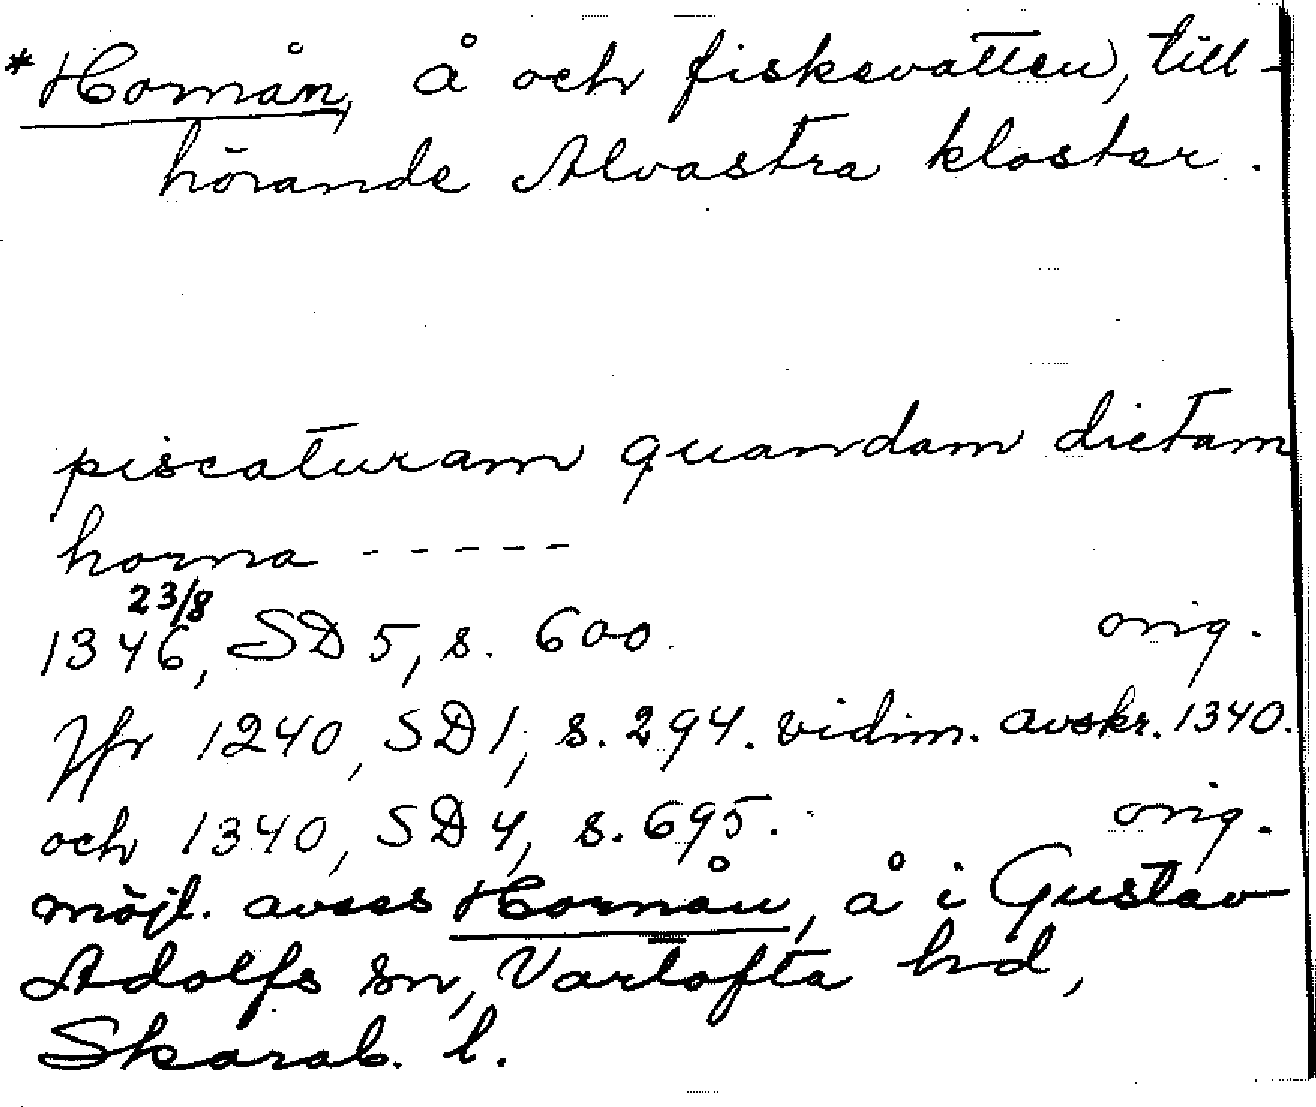 *Hornån, å och fiskevatten, till-
hörande Alvastra kloster.
piscaturam quandam dictam
horna -----
23/8
1346, SD 5, s. 600. orig.
Jfr 1240, SD 1, s. 294. vidim. avskr. 1340.
och 1340, SD 4, s. 695. orig.
möjl. avses Hornån, å i Gustav
Adolfs sn, Vartofta hd,
Skarab. l.